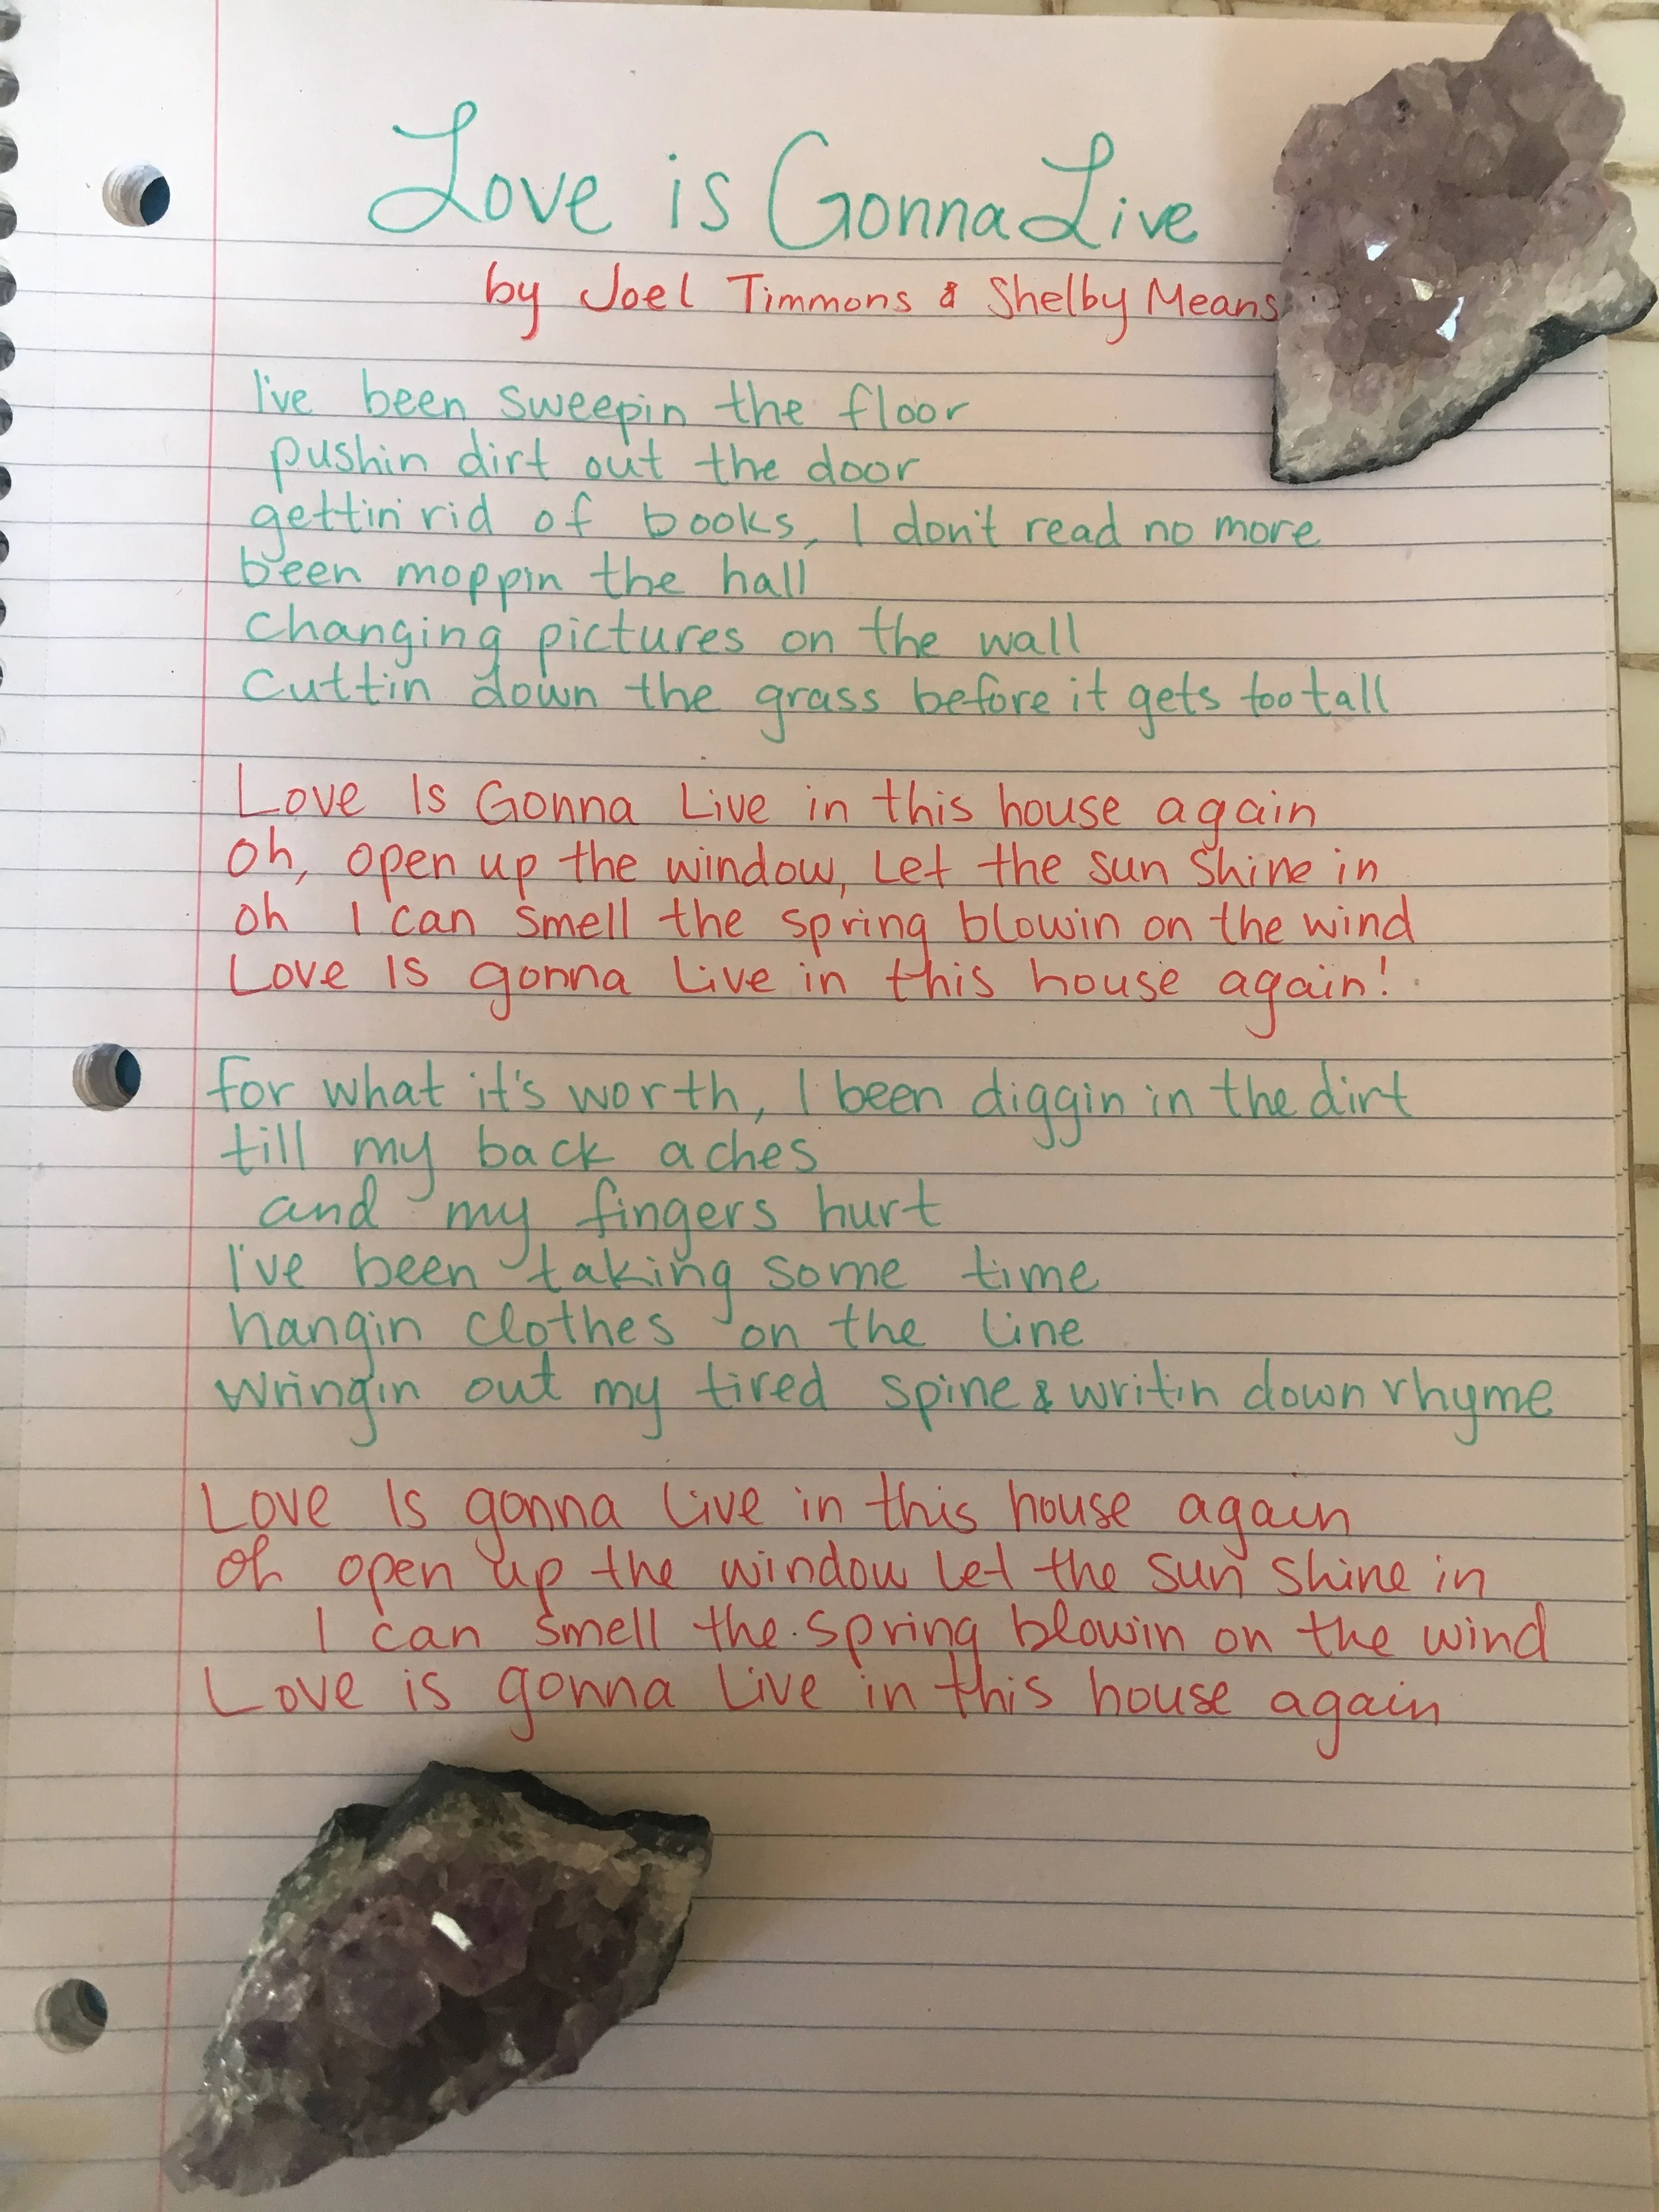 Love is Gonna Live
by Joel Timmons & Shelby Means
I've been sweepin the floor
pushin dirt out the door
gettin' rid of books, I don't read no more
been moppin the hall
changing pictures on the wall
cuttin down the grass before it gets too tall
Love Is Gonna Live in this house again
Oh, open up the window, let the sun shine in
oh I can smell the spring blowin on the wind
Love Is gonna Live in this house again!
for what it's worth, I been diggin in the dirt
till my back aches
and my fingers hurt
I've been taking some time
hangin clothes on the line
wringin out my tired spine & writin down rhyme
Love Is gonna Live in this house again
oh open up the window let the sun shine in
I can smell the spring blowin on the wind
Love is gonna Live in this house again